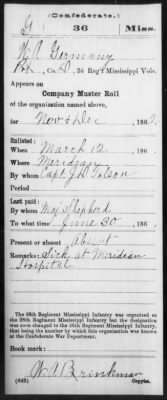 (Confederate.)
G 36 Miss.
W. A. Germany
Pvt., Co. D, 36 Reg't Mississippi Vols.
Appears on
Company Muster Roll
of the organization named above,
for Nov & Dec, 186
Enlisted:
When March 12, 186
Where Meridian
By whom Capt J. D. Tolson
Period
Last paid:
By whom Maj Shepherd
To what time June 30, 186
Present or absent Absent
Remarks: Sick at Meridian
Hospital
The 36th Regiment Mississippi Infantry was organized as
the 29th Regiment Mississippi Infantry but the designation
was soon changed to the 36th Regiment Mississippi Infantry, that
being the number by which this organization was known at
the Confederate War Department.
Book mark:
W A Brinkman
(642) Copyist.